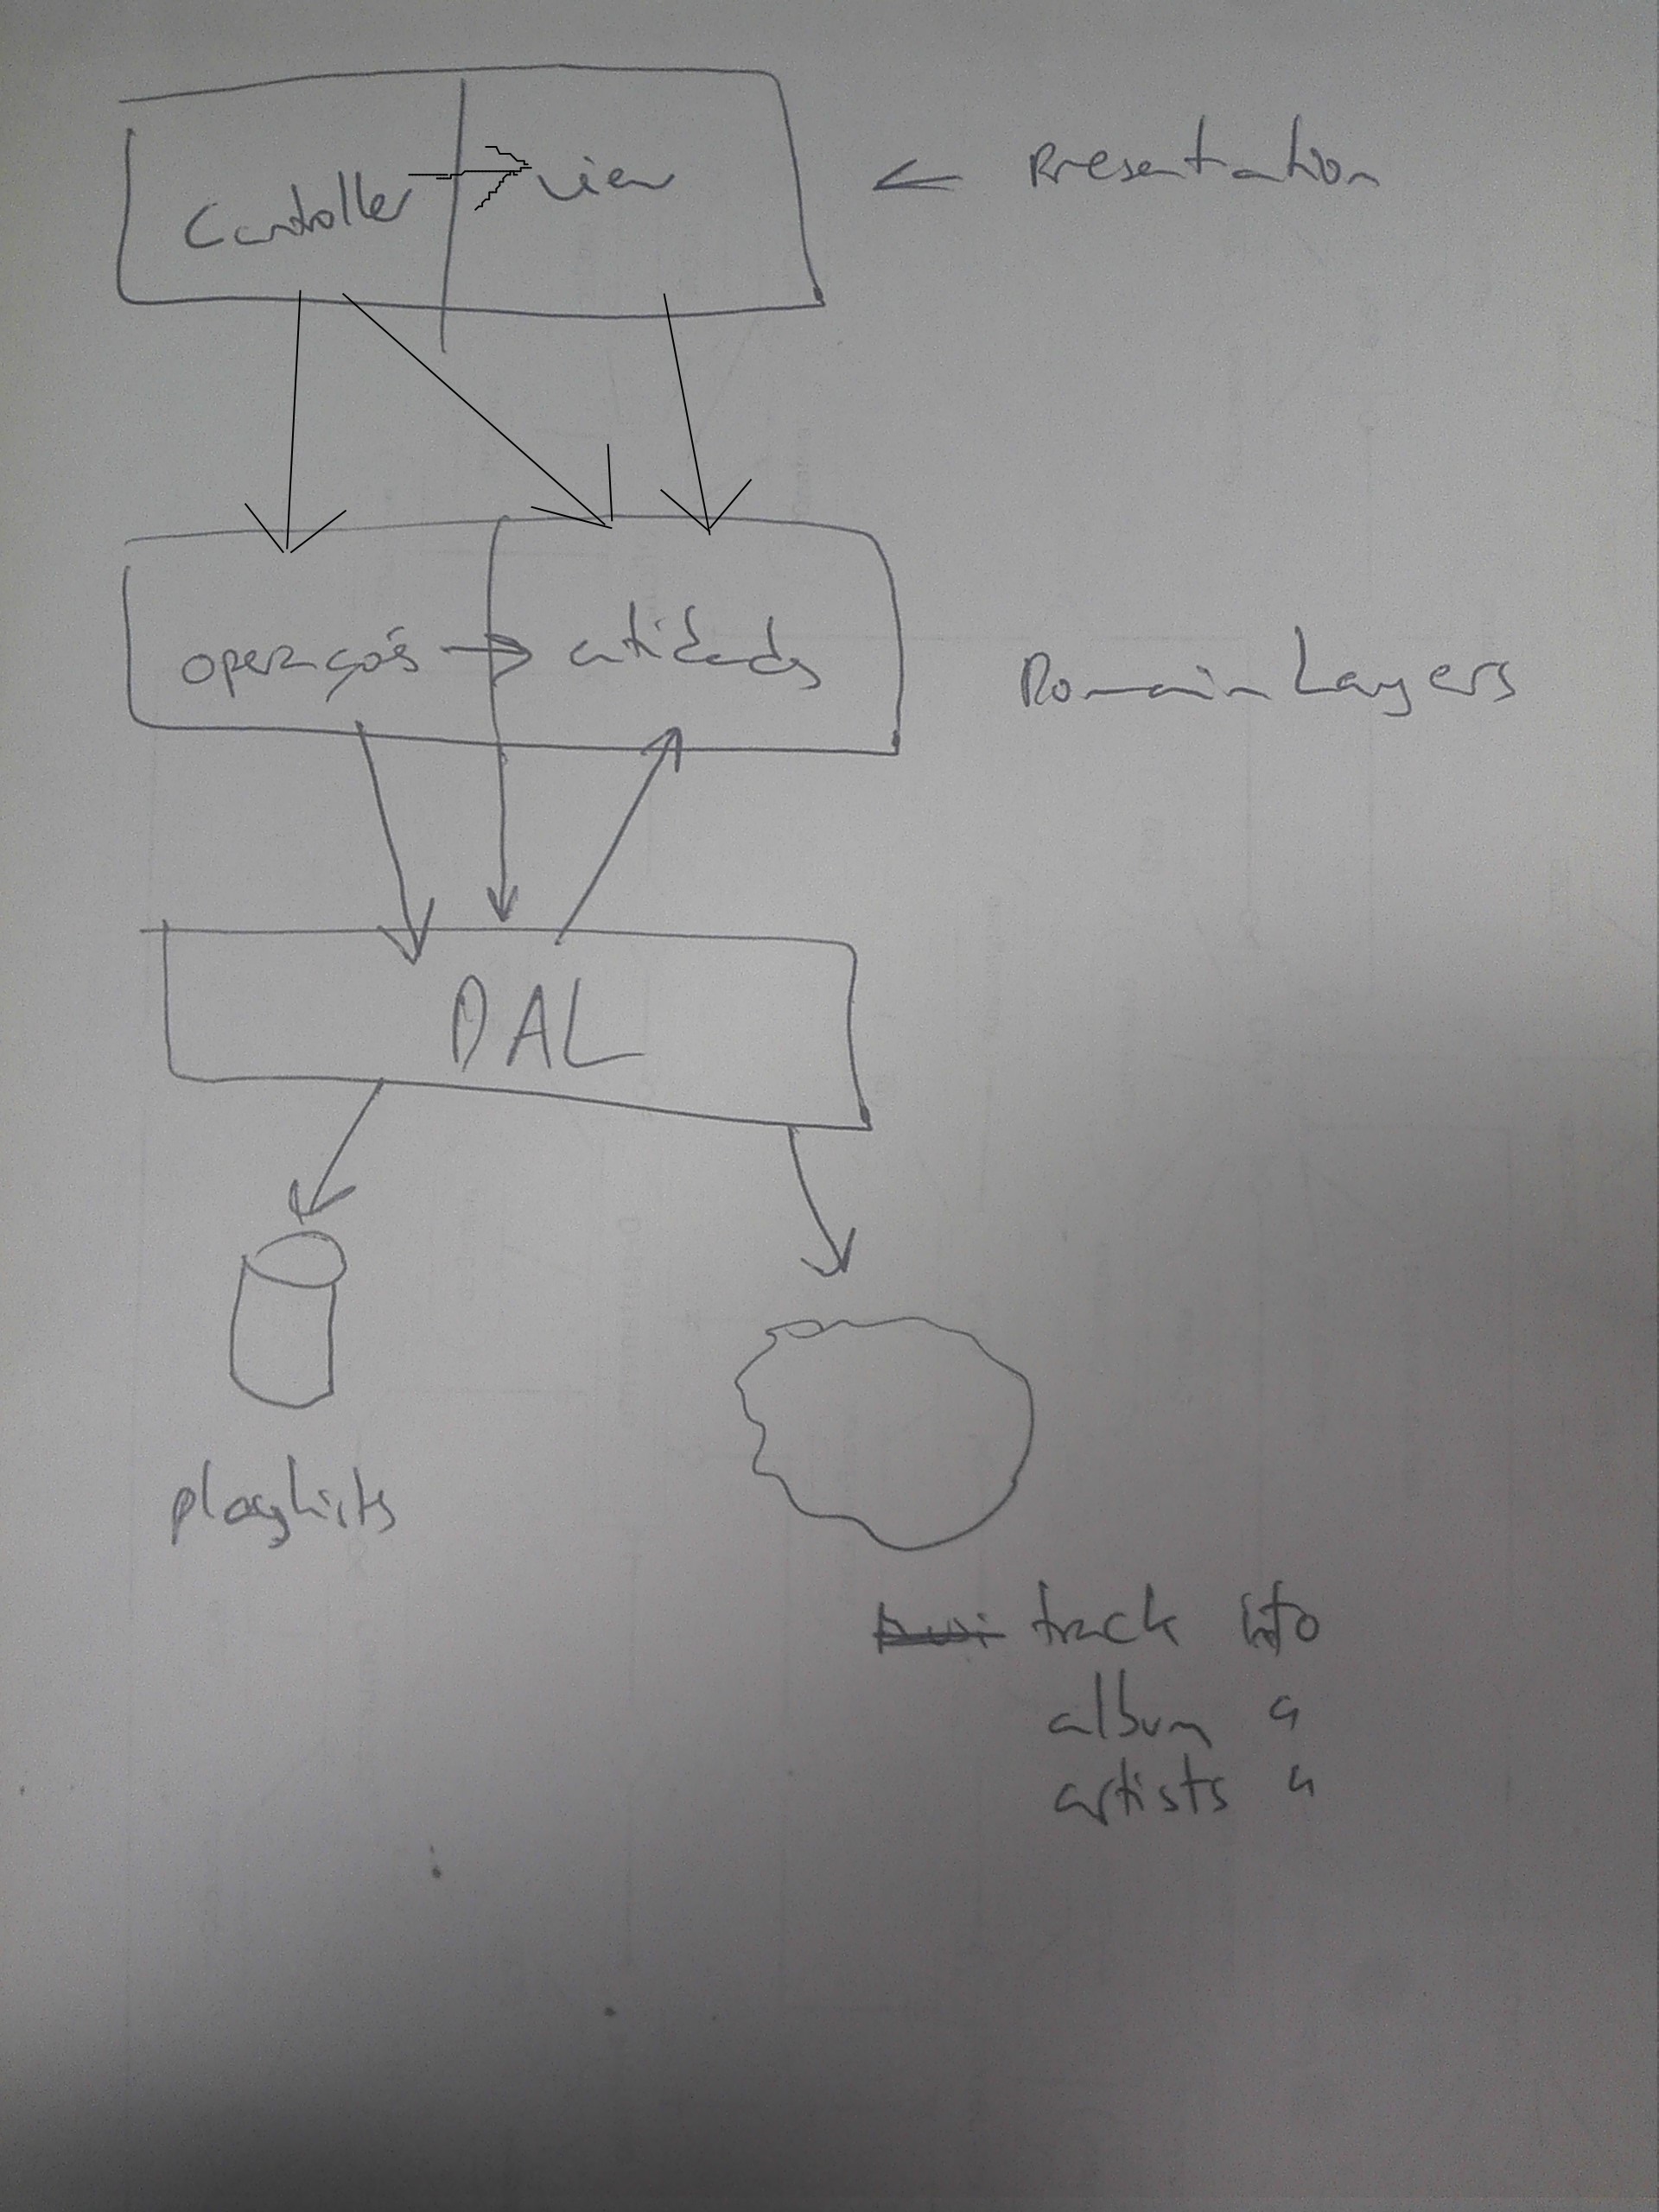 Controller
view
Presentation
operações
entidades
Domain Layers
DAL
playlists
track info
album "
artists "